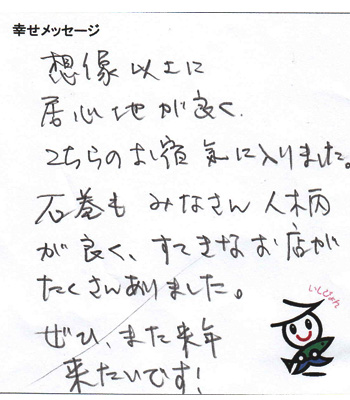 幸せメッセージ
想像以上に
居心地が良く、
こちらのお宿気に入りました。
石巻もみなさん人柄
が良く、すてきなお店が
たくさんありました。
いしぴょん
ぜひ、また来年
来たいです!